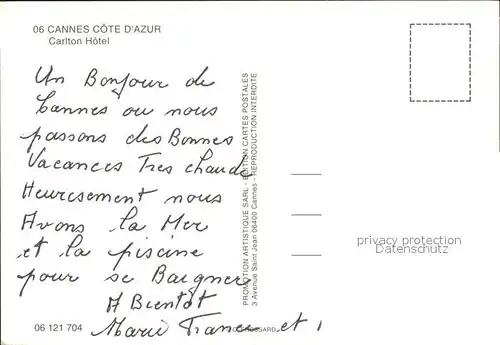 06 CANNES CÔTE D'AZUR
Carlton Hôtel
Un Bonjour de
Cannes ou nous
passons des Bonnes
Vacances Tres chaude
Heuresement nous
Avons la Mer
et la piscine
pour se Baigner
A Bientôt
Marie France et
06 121 704
PROMOTION ARTISTIQUE SARL - ÉDITION CARTES POSTALES
3 Avenue Saint Jean 06400 Cannes - REPRODUCTION INTERDITE
privacy protection
Datenschutz